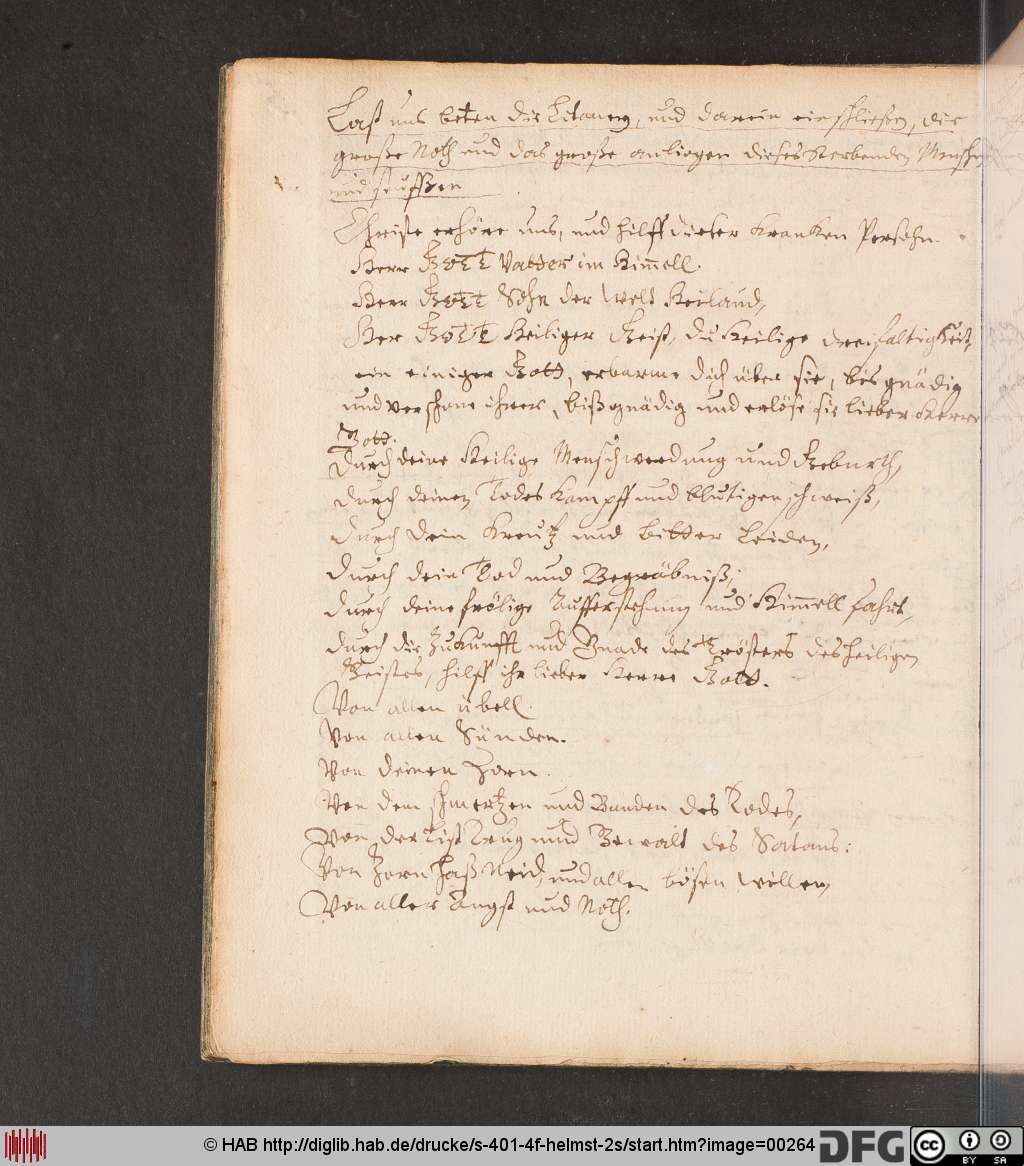 Last uns beten die Litaney, und darein einschliesen, die
große Noth und das große anliegen dieses sterbenden Menschen
und seuffzen
Christe erhöre uns, und hilff dieser krancken Persohn.
Herr GOTT Vatter im Himmell.
Herr GOTT Sohn der Welt Heiland,
Herr GOTT Heiliger Geist, du heilige dreifaltigkeit,
ein einiger Gott, erbarme dich über sie, bis gnädig
und verschone ihrer, biß gnädig und erlöse sie lieber Herre
Gott.
Durch deine Heilige Menschwerdung und Geburth,
durch deinen Todes Kampff und blutigen schweiß,
durch dein Kreutz und bitter Leiden,
durch dein Tod und Begräbniß,
durch deine frölige Aufferstehung und Himmell fahrt,
durch die Zukunfft und Gnade des Trösters des heiligen
Geistes, hilff ihr lieber Herre Gott.
Von allen übell.
Von allen Sünden.
Von deinen Zorn.
Von dem schmertzen und Banden des Todes,
Von der List Trug und Gewalt des Satans:
Von Zorn Haß Neid, und allen bösen willen,
Von aller Angst und Noth.
© HAB http://diglib.hab.de/drucke/s-401-4f-helmst-2s/start.htm?image=00264
DFG
cc BY SA